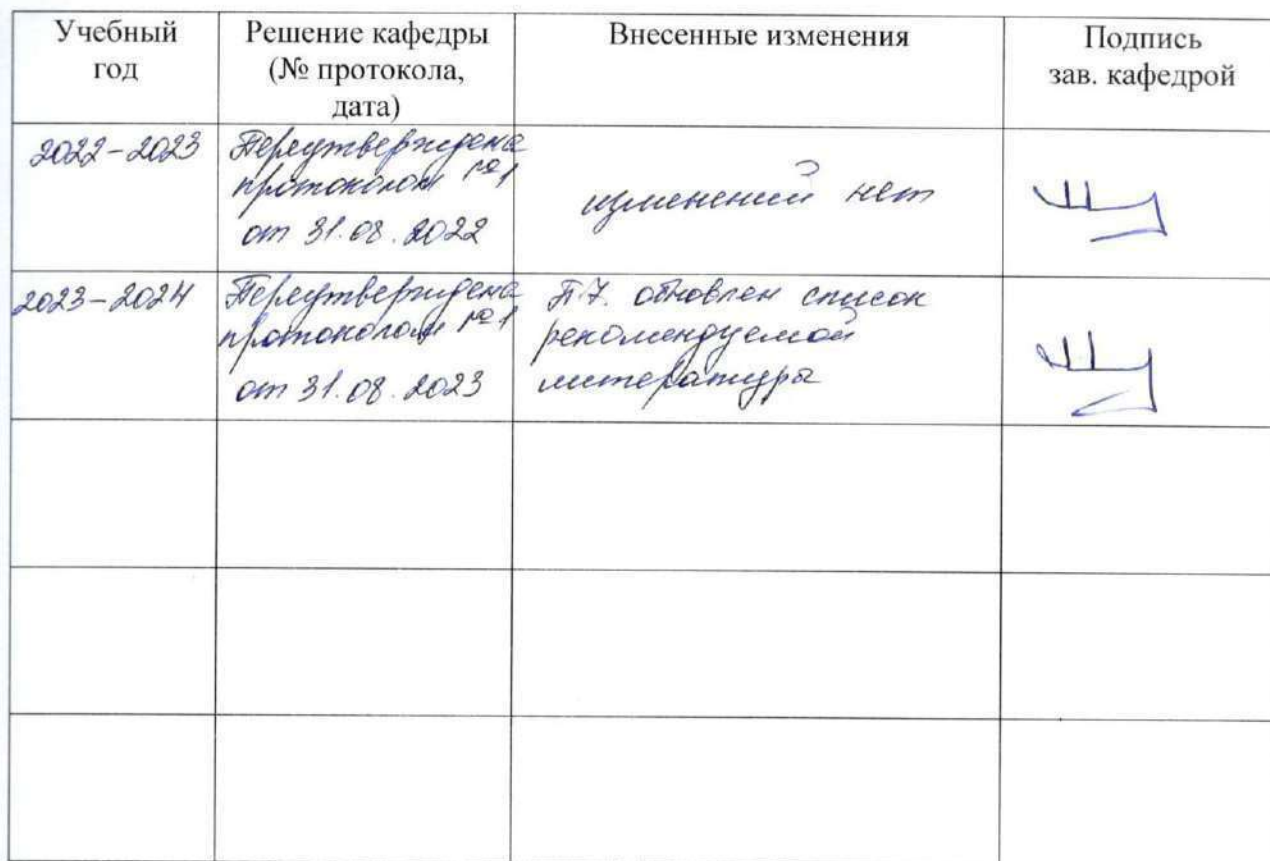 Учебный
год
Решение кафедры
(№ протокола,
дата)
Внесенные изменения
Подпись
зав. кафедрой
2022-2023
Переутверждена
протоколом №1
от 31.08.2022
изменений нет
2023-2024
Переутверждена
протоколом №1
от 31.08.2023
П.7. обновлен список
рекомендуемой
литературы